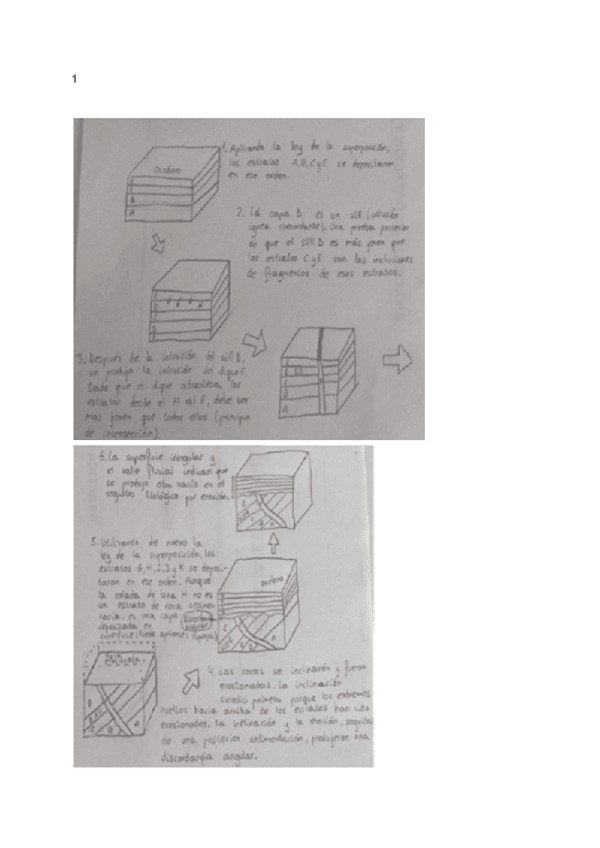 1
1. Aplicando la ley de la superposición,
los estratos A, B, C y E se depositaron
en ese orden.
Océano
2. La capa D es un sill (intrusión
ígnea concordante). Una prueba posterior
de que el sill D es más joven que
los estratos C y E son las inclusiones
de fragmentos de esos estratos.
3. Después de la intrusión del sill D,
se produjo la intrusión del dique F.
Dado que el dique atraviesa los
estratos desde el A al E, debe ser
más joven que todos ellos (principio
de intersección).
6. La superficie irregular y
el valle fluvial indican que
se produjo otro vacío en el
registro litológico por erosión.
5. Utilizando de nuevo la
ley de la superposición, los
estratos G, H, I, J y K se deposi-
taron en ese orden. Aunque
la colada de lava H no es
un estrato de roca sedimen-
taria, es una capa
depositada en
océano
4. Las rocas se inclinaron y fueron
erosionadas. La inclinación
sucedió primero porque los extremos
vueltos hacia arriba de los estratos han sido
erosionados. La inclinación y la erosión, seguidas
de una posterior sedimentación, produjeron una
discordancia angular.